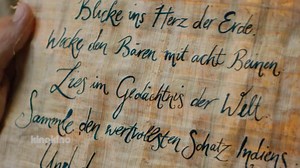 Blicke ins Herz der Erde.
Wecke den Bären mit acht Beinen
Lies im Gedächtnis der Welt
Sammle den wertvollsten Schatz Indiens
Und